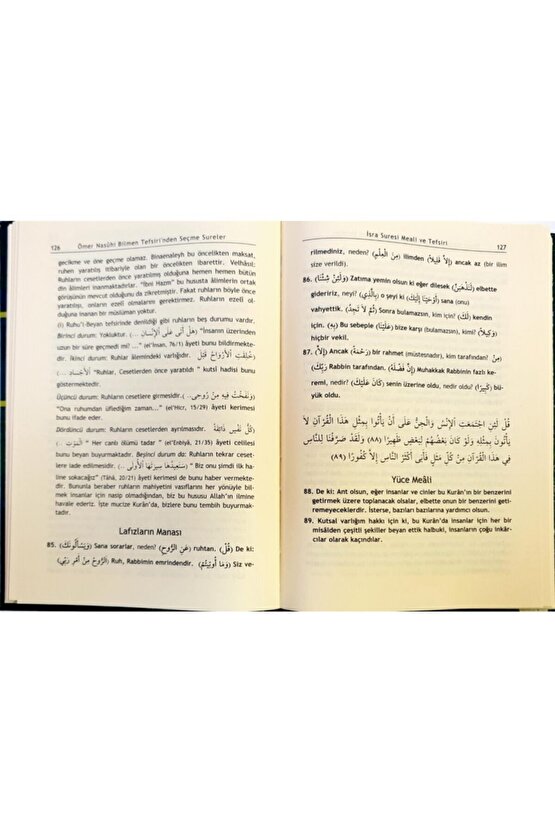 126 Ömer Nasûhi Bilmen Tefsiri'nden Seçme Sureler
gecikme ve öne geçme olamaz. Binaenaleyh bu öncelikten maksat,
ruhen yaratılış itibariyle olan bir öncelikten ibarettir. Velhâsıl;
Ruhların cesetlerden önce yaratılmış olduğuna hemen hemen bütün
din âlimleri inanmaktadırlar. "İbni Hazm" bu hususta âlimlerin ortak
görüşünün mevcut olduğunu da zikretmiştir. Fakat ruhların böyle önce
yaratılışı, onların ezelî olmalarını gerektirmez. Ruhların ezelî ol-
duğuna inanan bir müslüman yoktur.
(i) Ruhu'l-Beyan tefsirinde denildiği gibi ruhların beş durumu vardır.
Birinci durum: Yokluktur. (... هَلْ أَتَى عَلَى الْإِنْسَانِ) "İnsanın üzerinden
uzun bir süre geçmedi mi? ..." (el'İnsan, 76/1) âyeti bunu bildirmekte-
dir. İkinci durum: Ruhlar âlemindeki varlığıdır. خُلِقَتِ الْأَرْوَاحُ قَبْلَ
الْأَجْسَادِ (... "Ruhlar, Cesetlerden önce yaratıldı " kutsî hadisi bunu
göstermektedir.
Üçüncü durum: Ruhların cesetlere girmesidir. (... وَنَفَخْتُ فِيهِ مِنْ رُوحِي)
"Ona ruhumdan üflediğim zaman..." (el'Hicr, 15/29) âyeti kerimesi
bunu ifade eder.
Dördüncü durum: Ruhların cesetlerden ayrılmasıdır. (كُلُّ نَفْسٍ ذَائِقَةُ
الْمَوْتِ .. " Her canlı ölümü tadar " (el'Enbiyâ, 21/35) âyeti celilesi
bunu beyan buyurmaktadır. Beşinci durum da: Ruhların tekrar ceset-
lere iade edilmesidir. (... سَنُعِيدُهَا سِيرَتَهَا الْأُولَى) " Biz onu şimdi ilk ha-
line sokacağız" (Tâhâ, 20/21) âyeti kerimesi de bunu haber vermekte-
dir. Bununla beraber ruhların mahiyetini vasıflarını her yönüyle bil-
mek insanlar için nasip olmadığından, biz bu hususu Allah'ın ilmine
havale ederiz. İşte mucize Kurân'da, bizlere bunu tembih buyurmak-
tadır.
Lafızların Manası
85. (وَيَسْأَلُونَكَ) Sana sorarlar, neden? (عَنِ الرُّوحِ) ruhtan, (قُلِ) De ki:
(الرُّوحُ مِنْ أَمْرِ رَبِّي) Ruh, Rabbimin emrindendir. (وَمَا أُوتِيتُمْ) Siz ve-
İsra Suresi Meali ve Tefsiri 127
rilmediniz, neden? (مِنَ الْعِلْمِ) ilimden (إِلَّا قَلِيلًا) ancak az (bir ilim
size verildi).
86. (وَلَئِنْ شِئْنَا) Zatıma yemin olsun ki eğer dilesek (لَنَذْهَبَنَّ) elbette
gideririz, neyi? (بِالَّذِي) o şeyi ki (أَوْحَيْنَا إِلَيْكَ) sana (onu)
vahyettik. (ثُمَّ لَا تَجِدُ) Sonra bulamazsın, kim için? (لَكَ) kendin
için. (بِهِ) Bu sebeple (عَلَيْنَا) bize karşı (bulamazsın, kimi?) (وَكِيلًا)
hiçbir vekil.
87. (إِلَّا) Ancak (رَحْمَةً) bir rahmet (müstesnadır), kim tarafından? (مِنْ
رَبِّكَ) Rabbin tarafından. (إِنَّ فَضْلَهُ) Muhakkak Rabbinin fazlı ke-
remi, nedir? (كَانَ عَلَيْكَ) senin üzerine oldu, nedir oldu? (كَبِيرًا) bü-
yük oldu.
قُلْ لَئِنِ اجْتَمَعَتِ الْإِنْسُ وَالْجِنُّ عَلَى أَنْ يَأْتُوا بِمِثْلِ هَذَا الْقُرْآنِ لَا
يَأْتُونَ بِمِثْلِهِ وَلَوْ كَانَ بَعْضُهُمْ لِبَعْضٍ ظَهِيرًا (٨٨) وَلَقَدْ صَرَّفْنَا لِلنَّاسِ
فِي هَذَا الْقُرْآنِ مِنْ كُلِّ مَثَلٍ فَأَبَى أَكْثَرُ النَّاسِ إِلَّا كُفُورًا (٨٩)
Yüce Meâli
88. De ki: Ant olsun, eğer insanlar ve cinler bu Kurân'ın bir benzerini
getirmek üzere toplanacak olsalar, elbette onun bir benzerini geti-
remeyeceklerdir. İsterse, bazıları bazılarına yardımcı olsun.
89. Kutsal varlığım hakkı için ki, bu Kurân'da insanlar için her bir
misâlden çeşitli şekiller beyan ettik halbuki, insanların çoğu inkâr-
cılar olarak kaçındılar.